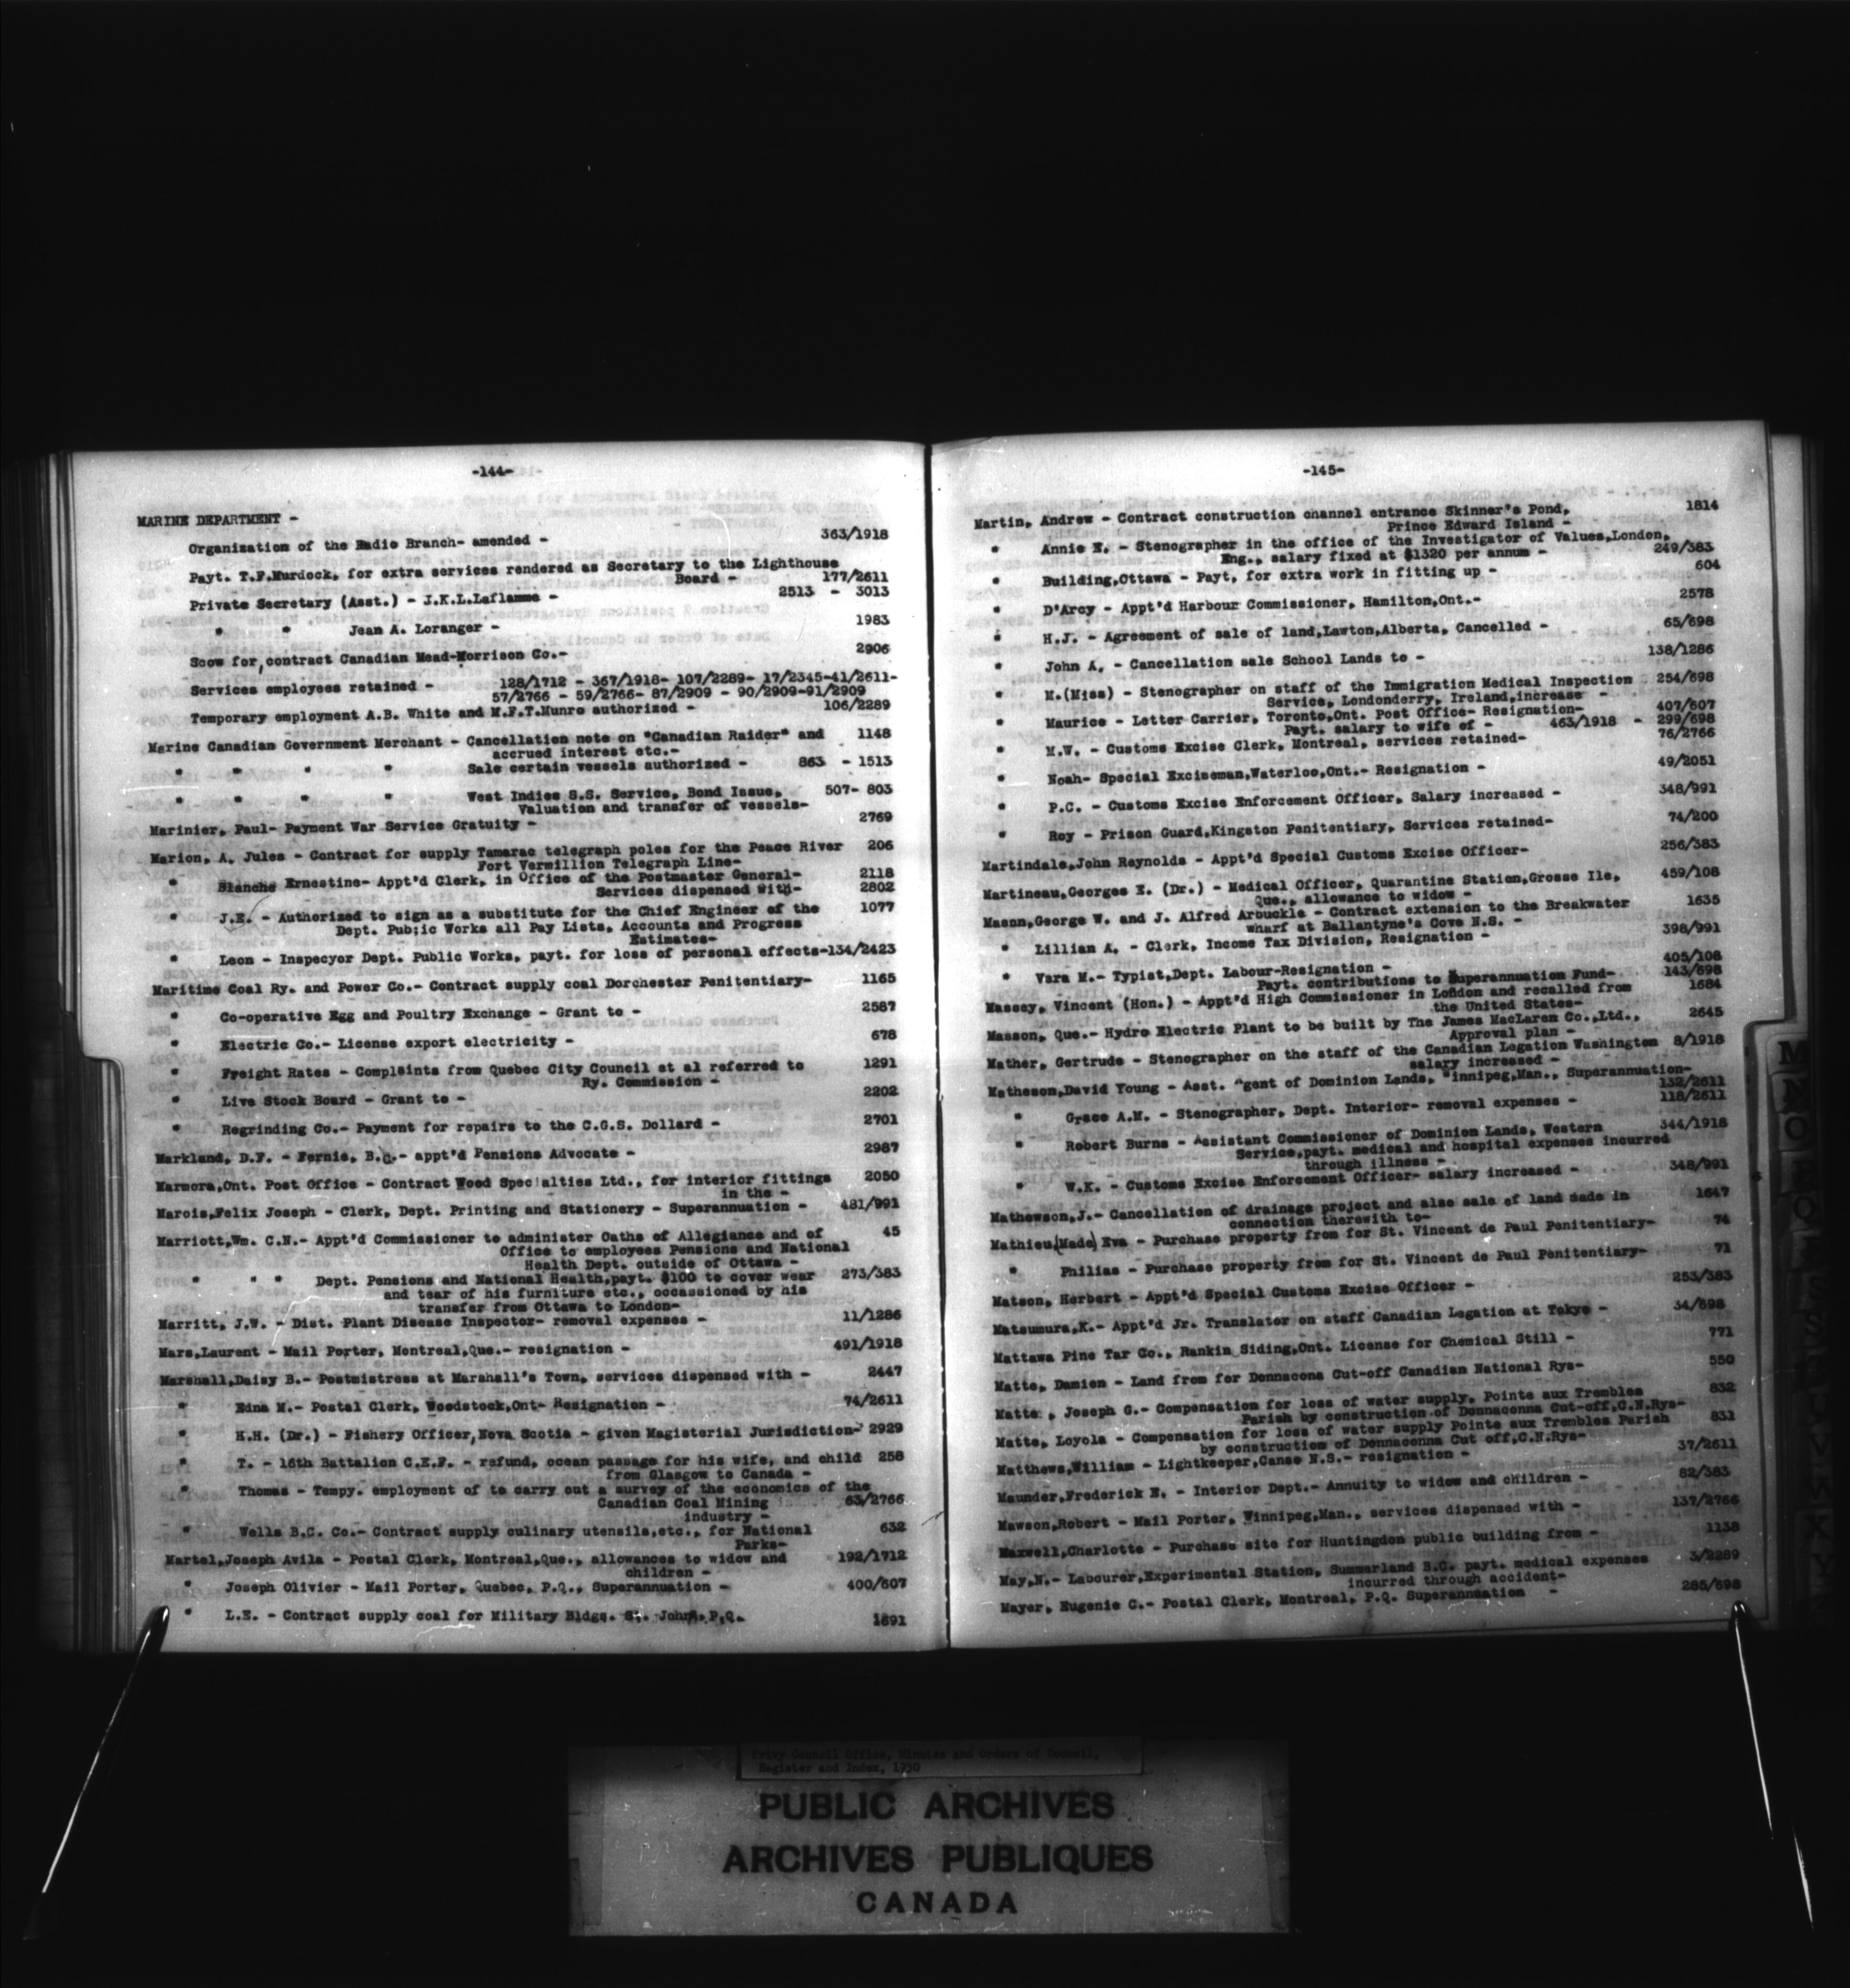 -144-
MARINE DEPARTMENT -
Organization of the Radio Branch- amended - 363/1918
Payt. T.F.Murdock, for extra services rendered as Secretary to the Lighthouse
Board - 177/2611
Private Secretary (Asst.) - J.K.L.Laflamme - 2513 - 3013
" " Jean A. Loranger - 1983
Scow for, contract Canadian Mead-Morrison Co.- 2906
Services employees retained - 128/1712 - 367/1918- 107/2289- 17/2345-41/2611-
57/2766 - 59/2766- 87/2909 - 90/2909-91/2909
Temporary employment A.B. White and M.F.T.Munro authorized - 106/2289
Marine Canadian Government Merchant - Cancellation note on "Canadian Raider" and 1148
accrued interest etc.-
" " " " Sale certain vessels authorized - 863 - 1513
" " " " West Indies S.S. Service, Bond Issue, 507- 803
Valuation and transfer of vessels-
Marinier, Paul- Payment War Service Gratuity - 2769
Marion, A. Jules - Contract for supply Tamarac telegraph poles for the Peace River 206
Fort Vermillion Telegraph Line-
" Blanche Ernestine- Appt'd Clerk, in Office of the Postmaster General- 2118
Services dispensed with- 2802
" J.E. - Authorized to sign as a substitute for the Chief Engineer of the 1077
Dept. Pub;ic Works all Pay Lists, Accounts and Progress
Estimates-
" Leon - Inspecyor Dept. Public Works, payt. for loss of personal effects-134/2423
Maritime Coal Ry. and Power Co.- Contract supply coal Dorchester Penitentiary- 1165
" Co-operative Egg and Poultry Exchange - Grant to - 2587
" Electric Co.- License export electricity - 678
" Freight Rates - Complaints from Quebec City Council et al referred to 1291
Ry. Commission -
" Live Stock Board - Grant to - 2202
" Regrinding Co.- Payment for repairs to the C.G.S. Dollard - 2701
Markland, D.F. - Fernie, B.C.- appt'd Pensions Advocate - 2987
Marmora,Ont. Post Office - Contract Wood Specialties Ltd., for interior fittings 2050
in the -
Marois,Felix Joseph - Clerk, Dept. Printing and Stationery - Superannuation - 481/991
Marriott,Wm. C.N.- Appt'd Commissioner to administer Oaths of Allegiance and of 45
Office to employees Pensions and National
Health Dept. outside of Ottawa -
" " " Dept. Pensions and National Health,payt. $100 to cover wear 273/383
and tear of his furniture etc., occassioned by his
transfer from Ottawa to London-
Marritt, J.W. - Dist. Plant Disease Inspector- removal expenses - 11/1286
Mars,Laurent - Mail Porter, Montreal,Que.- resignation - 491/1918
Marshall,Daisy B.- Postmistress at Marshall's Town, services dispensed with - 2447
" Edna M.- Postal Clerk, Woodstock,Ont- Resignation - 74/2611
" H.H. (Dr.) - Fishery Officer,Nova Scotia - given Magisterial Jurisdiction- 2929
" T. - 16th Battalion C.E.F. - refund, ocean passage for his wife, and child 258
from Glasgow to Canada -
" Thomas - Tempy. employment of to carry out a survey of the economics of the
Canadian Coal Mining 63/2766
industry -
" Wells B.C. Co.- Contract supply culinary utensils,etc., for National 632
Parks-
Martel,Joseph Avila - Postal Clerk, Montreal,Que., allowances to widow and 192/1712
children -
" Joseph Olivier - Mail Porter, Quebec, P.Q., Superannuation - 400/607
" L.E. - Contract supply coal for Military Bldgs. St. Johns, P.Q. 1691
-145-
Martin, Andrew - Contract construction channel entrance Skinner's Pond, 1814
Prince Edward Island -
" Annie N. - Stenographer in the office of the Investigator of Values,London,
Eng., salary fixed at $1320 per annum - 249/383
" Building,Ottawa - Payt, for extra work in fitting up - 604
" D'Arcy - Appt'd Harbour Commissioner, Hamilton,Ont.- 2578
" H.J. - Agreement of sale of land,Lawton,Alberta, Cancelled - 65/698
" John A. - Cancellation sale School Lands to - 138/1286
" M.(Miss) - Stenographer on staff of the Immigration Medical Inspection 254/698
Service, Londonderry, Ireland,increase -
" Maurice - Letter Carrier, Toronto,Ont. Post Office- Resignation- 407/607
Payt. salary to wife of - 463/1918 - 299/698
" M.W. - Customs Excise Clerk, Montreal, services retained- 76/2766
" Noah- Special Exciseman,Waterloo,Ont.- Resignation - 49/2051
" P.C. - Customs Excise Enforcement Officer, Salary increased - 348/991
" Roy - Prison Guard,Kingston Penitentiary, Services retained- 74/200
Martindale,John Reynolds - Appt'd Special Customs Excise Officer- 256/383
Martineau,Georges E. (Dr.) - Medical Officer, Quarantine Station,Grosse Ile, 459/108
Que., allowance to widow -
Mason,George W. and J. Alfred Arbuckle - Contract extension to the Breakwater 1635
wharf at Ballantyne's Cove N.S. -
" Lillian A. - Clerk, Income Tax Division, Resignation - 398/991
" Vara M.- Typist,Dept. Labour-Resignation - 405/108
Payt. contributions to Superannuation Fund- 143/698
Massey, Vincent (Hon.) - Appt'd High Commissioner in London and recalled from 1684
the United States-
Masson, Que.- Hydro Electric Plant to be built by The James MacLaren Co.,Ltd., 2645
Approval plan -
Mather, Gertrude - Stenographer on the staff of the Canadian Legation Washington 8/1918
salary increased -
Matheson,David Young - Asst. Agent of Dominion Lands, Winnipeg,Man., Superannuation-
132/2611
" Grace A.M. - Stenographer, Dept. Interior- removal expenses - 118/2611
" Robert Burns - Assistant Commissioner of Dominion Lands, Western 344/1918
Service,payt. medical and hospital expenses incurred
through illness -
" W.K. - Customs Excise Enforcement Officer- salary increased - 348/991
Mathewson,J.- Cancellation of drainage project and also sale of land made in 1647
connection therewith to-
Mathieu(Made) Eva - Purchase property from for St. Vincent de Paul Penitentiary- 74
" Philias - Purchase property from for St. Vincent de Paul Penitentiary- 71
Matson, Herbert - Appt'd Special Customs Excise Officer - 253/383
Matsumura,K.- Appt'd Jr. Translator on staff Canadian Legation at Tokyo - 34/698
Mattawa Pine Tar Co., Rankin Siding,Ont. License for Chemical Still - 771
Matte, Damien - Land from for Donnacona Cut-off Canadian National Rys- 550
Matte , Joseph G.- Compensation for loss of water supply, Pointe aux Trembles 832
Parish by construction of Donnaconna Cut-off,C.N.Rys-
Matte, Loyola - Compensation for loss of water supply Pointe aux Trembles Parish 831
by construction of Donnaconna Cut off,C.N.Rys-
Matthews,William - Lightkeeper,Canso N.S.- resignation - 37/2611
Maunder,Frederick N. - Interior Dept.- Annuity to widow and children - 82/383
Mawson,Robert - Mail Porter, Winnipeg,Man., services dispensed with - 137/2766
Maxwell,Charlotte - Purchase site for Huntingdon public building from - 1138
May,N.- Labourer,Experimental Station, Summerland B.C. payt. medical expenses 3/2289
incurred through accident-
Mayer, Eugenie C.- Postal Clerk, Montreal, P.Q. Superannuation - 285/698
Privy Council Office, Minutes and Orders of Council,
Register and Index, 1930
PUBLIC ARCHIVES
ARCHIVES PUBLIQUES
CANADA